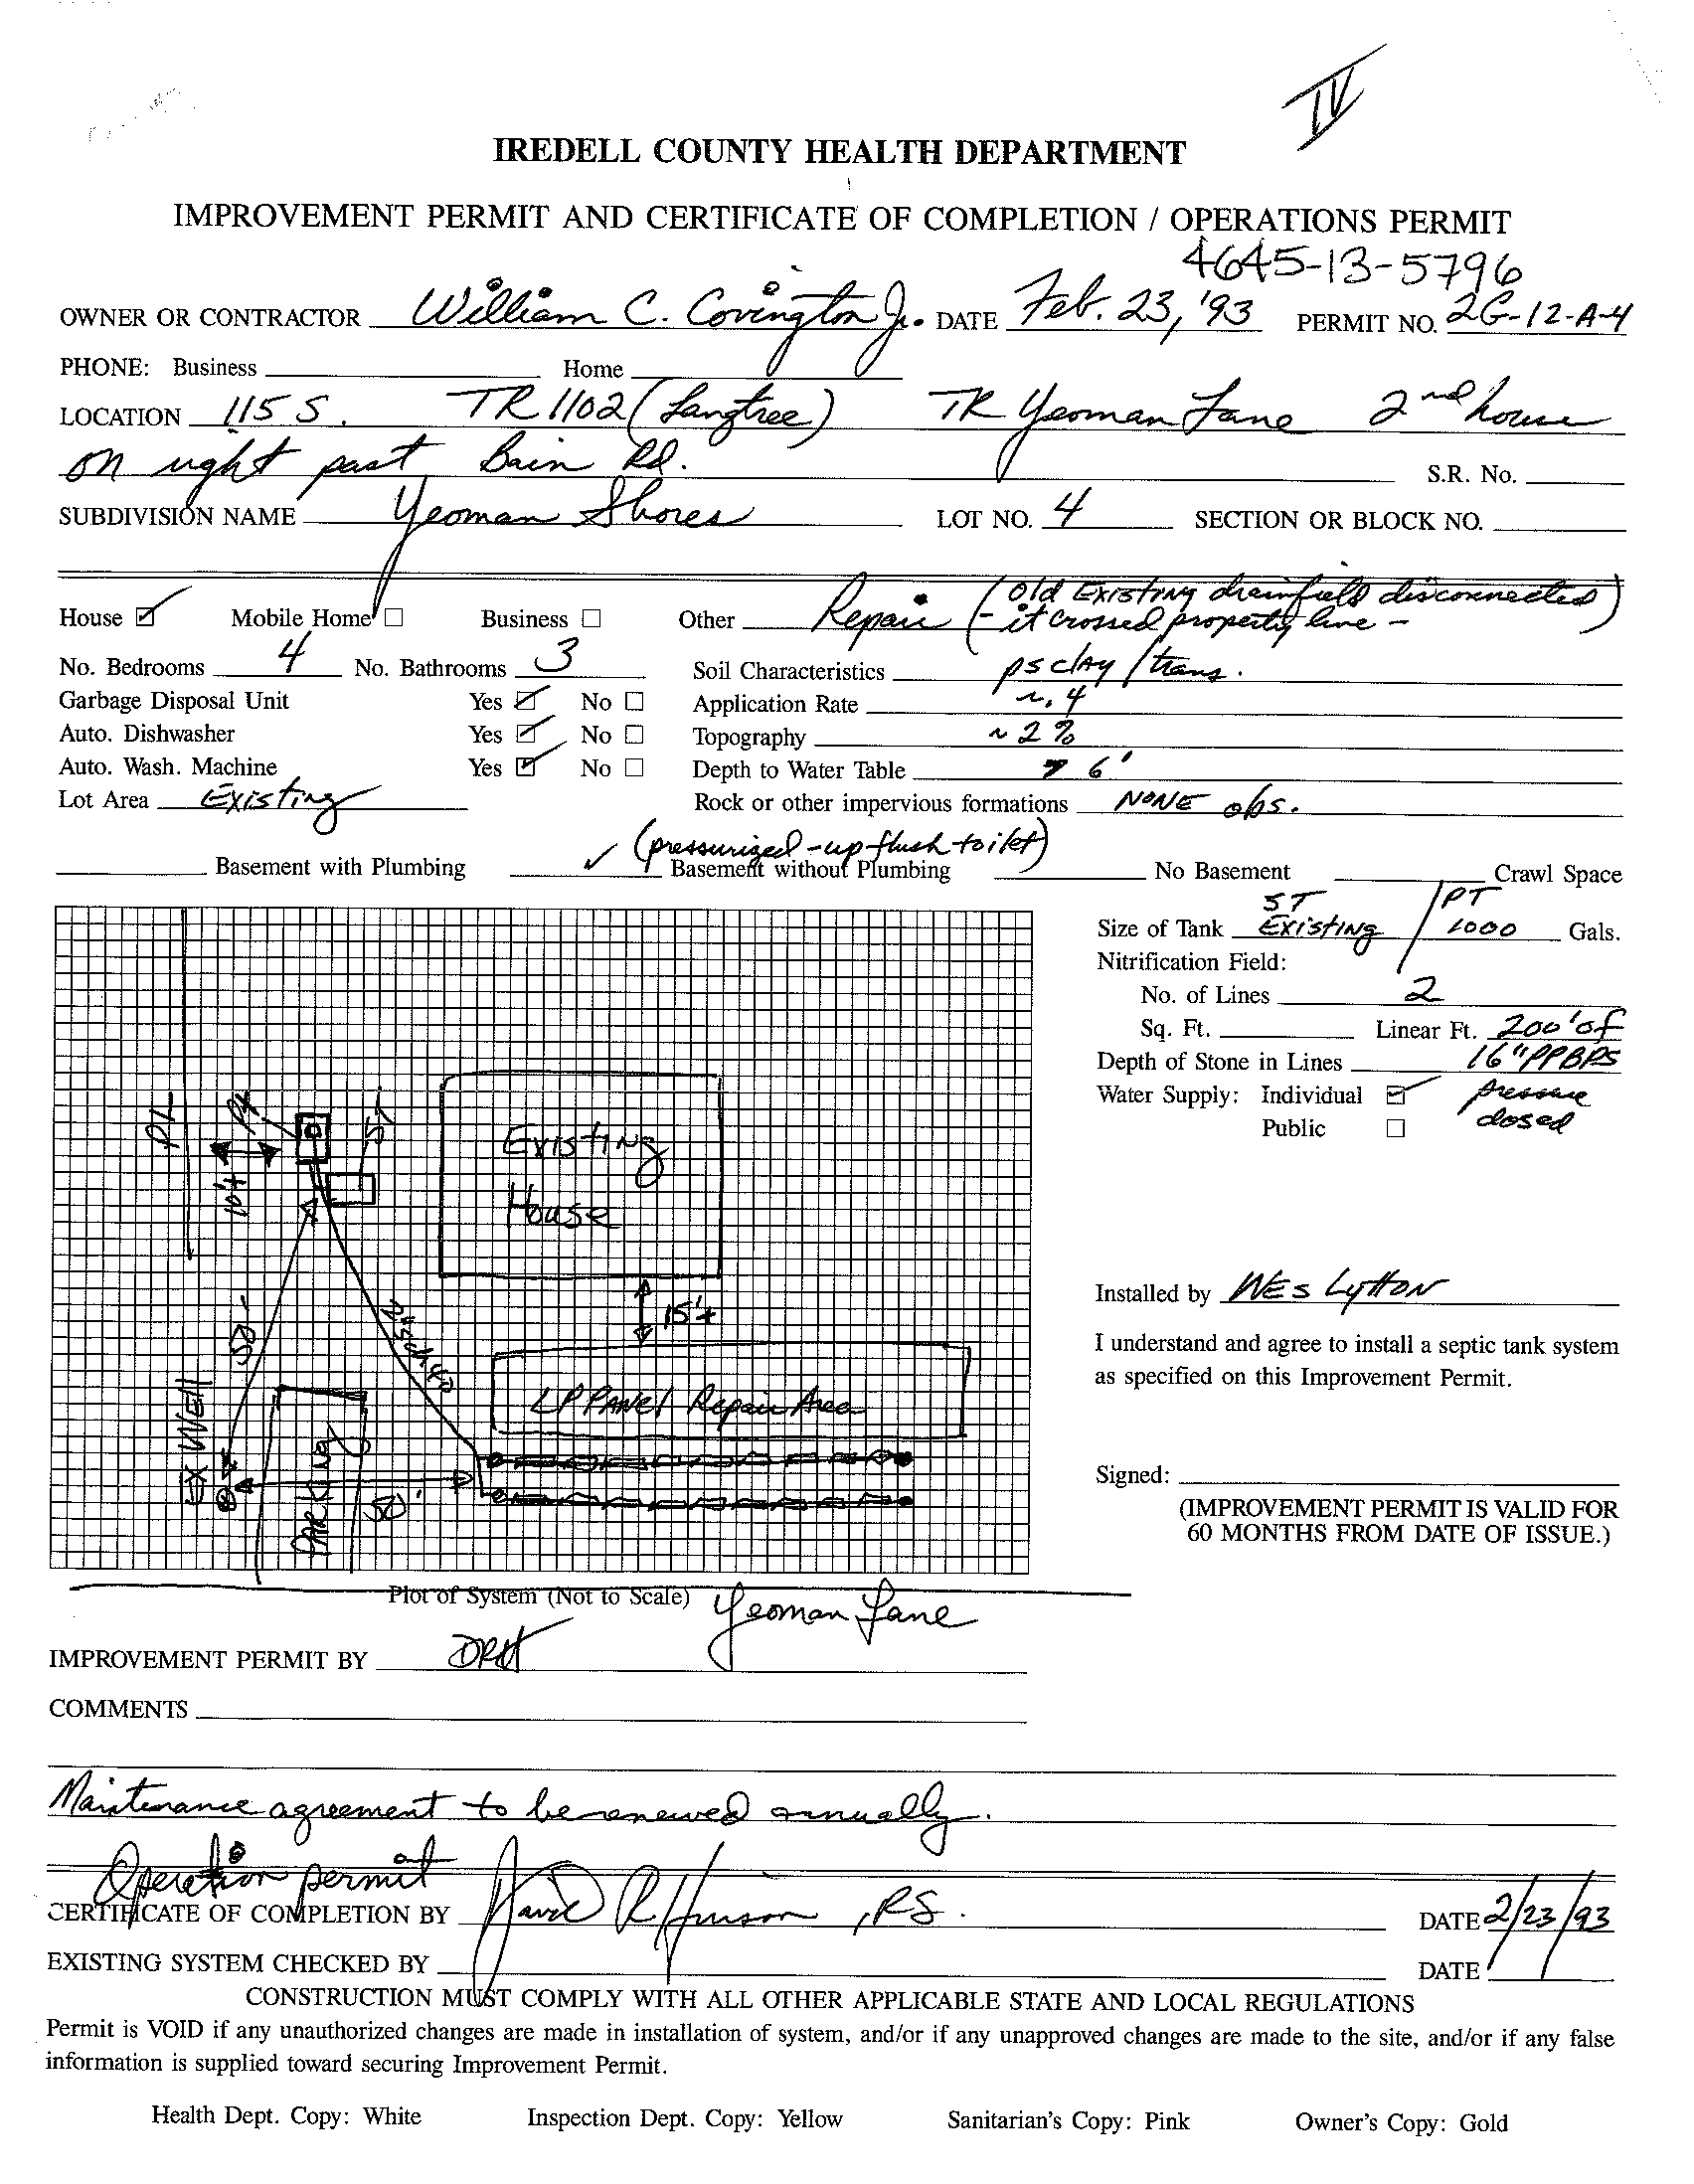 IV
IREDELL COUNTY HEALTH DEPARTMENT
IMPROVEMENT PERMIT AND CERTIFICATE OF COMPLETION / OPERATIONS PERMIT
4645-13-5796
OWNER OR CONTRACTOR William C. Covington Jr. DATE Feb. 23, '93 PERMIT NO. 2G-12-A-4
PHONE: Business Home
LOCATION 115 S. TR 1102 (Langtree) TR Yeoman Lane 2nd house
on right past Bain Rd. S.R. No.
SUBDIVISION NAME Yeoman Shores LOT NO. 4 SECTION OR BLOCK NO.
(Old Existing drainfield disconnected)
House ☑ Mobile Home ☐ Business ☐ Other Repair - it crossed property line -
No. Bedrooms 4 No. Bathrooms 3 Soil Characteristics ps clay / trans.
Garbage Disposal Unit Yes ☑ No ☐ Application Rate ~.4
Auto. Dishwasher Yes ☑ No ☐ Topography ~ 2 %
Auto. Wash. Machine Yes ☑ No ☐ Depth to Water Table > 6'
Lot Area Existing Rock or other impervious formations NONE obs.
(pressurized - up flush toilet)
Basement with Plumbing ✓ Basement without Plumbing No Basement Crawl Space
ST PT
Size of Tank Existing / 1000 Gals.
Nitrification Field:
No. of Lines 2
Sq. Ft. Linear Ft. 200' of
Depth of Stone in Lines 16" PPBPS
Water Supply: Individual ☑ pressure
Public ☐ dosed
PL
PT
ST
10'+
Existing
House
15'+
50'
Ex Well
PARKING
50'
LP PANEL Repair Area
Installed by WES LYTTON
I understand and agree to install a septic tank system
as specified on this Improvement Permit.
Signed:
(IMPROVEMENT PERMIT IS VALID FOR
60 MONTHS FROM DATE OF ISSUE.)
Plot of System (Not to Scale) Yeoman Lane
IMPROVEMENT PERMIT BY DRH
COMMENTS
Maintenance agreement to be renewed annually.
Operation permit
CERTIFICATE OF COMPLETION BY David R. Hinson, RS. DATE 2/23/93
EXISTING SYSTEM CHECKED BY DATE
CONSTRUCTION MUST COMPLY WITH ALL OTHER APPLICABLE STATE AND LOCAL REGULATIONS
Permit is VOID if any unauthorized changes are made in installation of system, and/or if any unapproved changes are made to the site, and/or if any false
information is supplied toward securing Improvement Permit.
Health Dept. Copy: White Inspection Dept. Copy: Yellow Sanitarian's Copy: Pink Owner's Copy: Gold